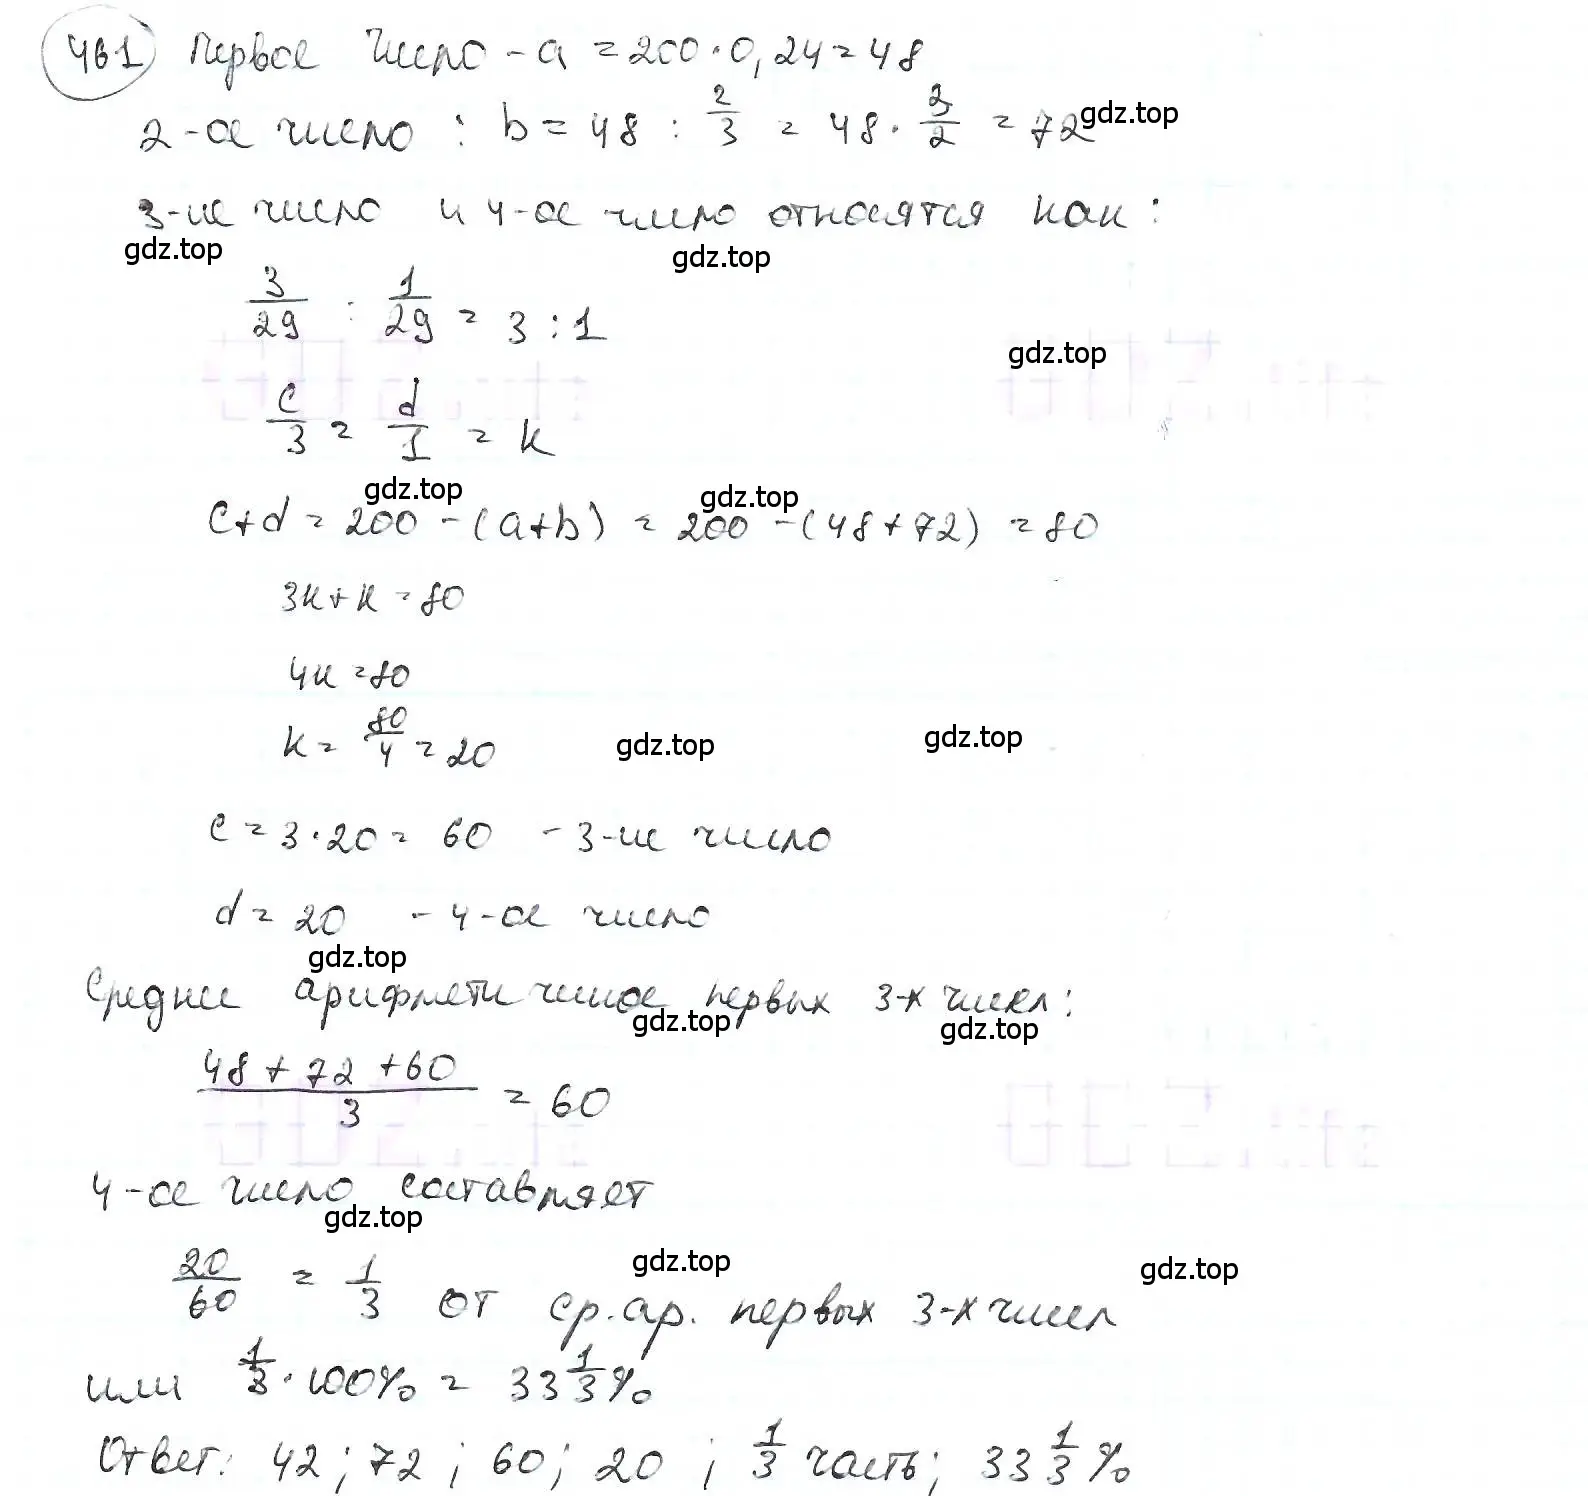 461 Первое число - a = 200 · 0,24 = 48
2-ое число : b = 48 : 2/3 = 48 · 3/2 = 72 gdz.top
3-ие число и 4-ое число относятся как :
gdz.top gdz.top
3/29 : 1/29 = 3 : 1
gdz.top
c/3 = d/1 = k
gdz.top gdz.top
c+d = 200 - (a+b) = 200 - (48+72) = 80
3k+k = 80
4k = 80
k = 80/4 = 20 gdz.top gdz.top
c = 3·20 = 60 - 3-ие число
d = 20 - 4-ое число
gdz.top
Среднее арифметическое первых 3-х чисел:
gdz.top gdz.top
(48 + 72 + 60)/3 = 60
4-ое число составляет
gdz.top
gdz.top gdz.top
20/60 = 1/3 от ср. ар. первых 3-х чисел
или 1/3 · 100% = 33 1/3 %
Ответ: 42 ; 72 ; 60 ; 20 ; 1/3 часть; 33 1/3 %